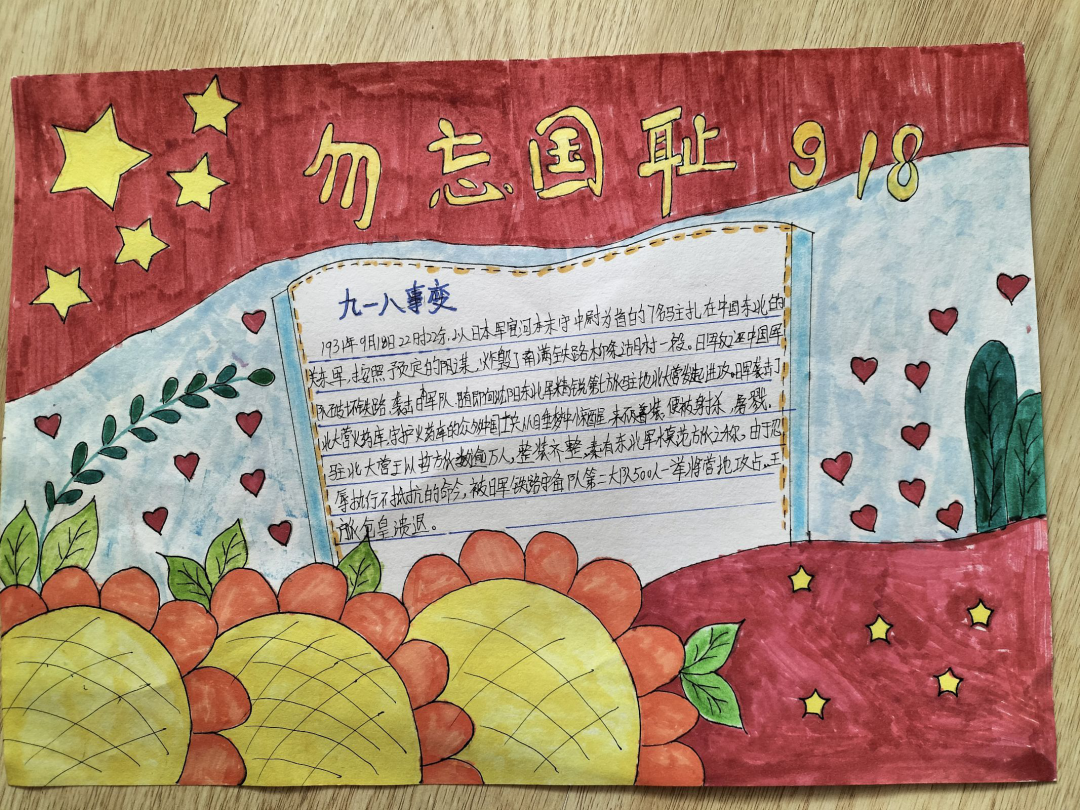 勿忘国耻 918
九一八事变
1931年9月18日22时22分,以日本军官河本末守中尉为首的7名驻扎在中国东北的
关东军,按照预定的阴谋,炸毁了南满铁路柳条湖村一段。日军
破坏铁路,袭击日军队,随即向沈阳东北军精锐第七旅驻地北大营发起进攻。日军袭击了
北大营火药库,守护火药库的众多中国士兵从睡梦中醒,未及着装,便被射杀、屠戮。
驻北大营王以哲万人,整装齐整,素有东北军模范旅之称。由于忍
辱执行不抵抗的命令,被日军铁路守备队第二大队500人一举将营地攻占,王
旅仓皇溃退。